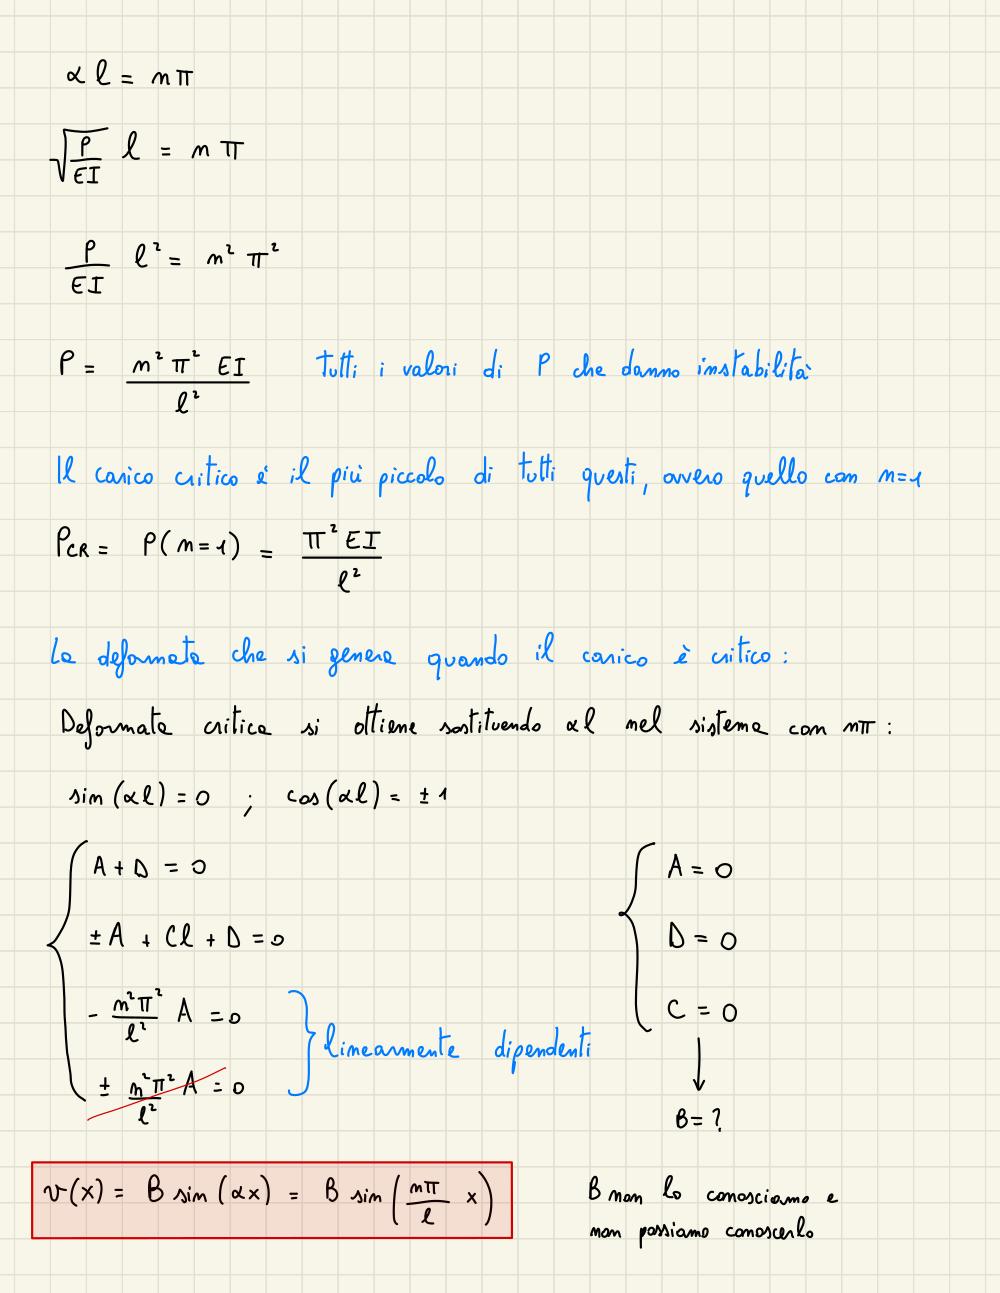 αl = nπ
√(P/EI) l = nπ
P/EI l² = n² π²
P = n² π² EI / l² tutti i valori di P che danno instabilità
Il carico critico é il più piccolo di tutti questi, ovvero quello con n=1
P_CR = P(n=1) = π² EI / l²
La deformata che si genera quando il carico è critico:
Deformata critica si ottiene sostituendo αl nel sistema con nπ:
sin(αl) = 0 ; cos(αl) = ±1
A + D = 0
± A + Cl + D = 0
- n²π²/l² A = 0
± n²π²/l² A = 0
linearmente dipendenti
A = 0
D = 0
C = 0
↓
B = ?
v(x) = B sin(αx) = B sin(nπ/l x)
B non lo conosciamo e
non possiamo conoscerlo